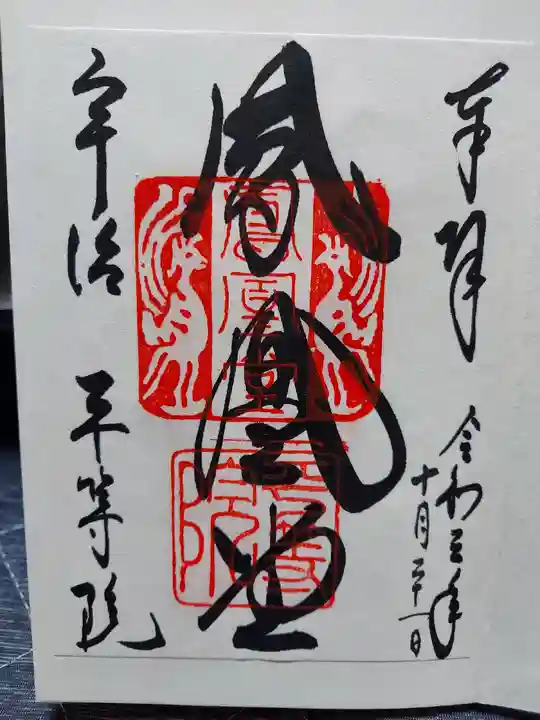 奉拝
令和三年
十月二十一日
鳳凰堂
宇治 平等院
鳳凰堂